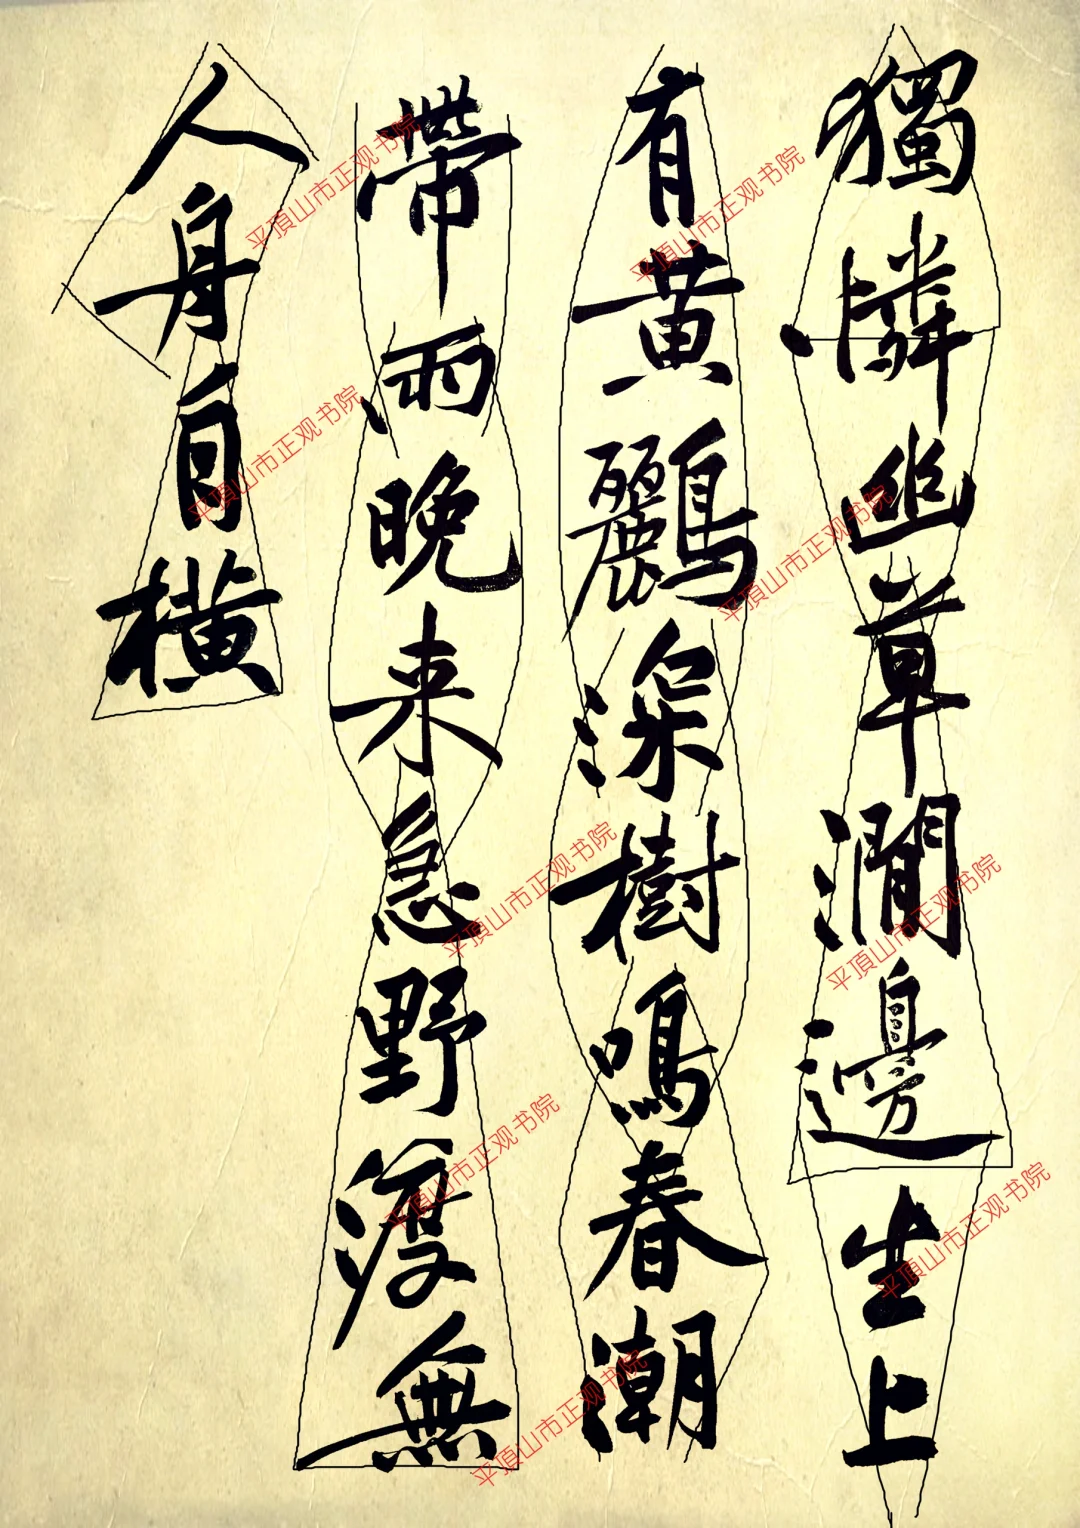 獨憐幽草澗邊生上
有黄鸝深樹鳴春潮
帶雨晚来急野渡無
人身自横
平頂山市正观书院
平頂山市正观书院
平頂山市正观书院
平頂山市正观书院
平頂山市正观书院
平頂山市正观书院
平頂山市正观书院
平頂山市正观书院
平頂山市正观书院